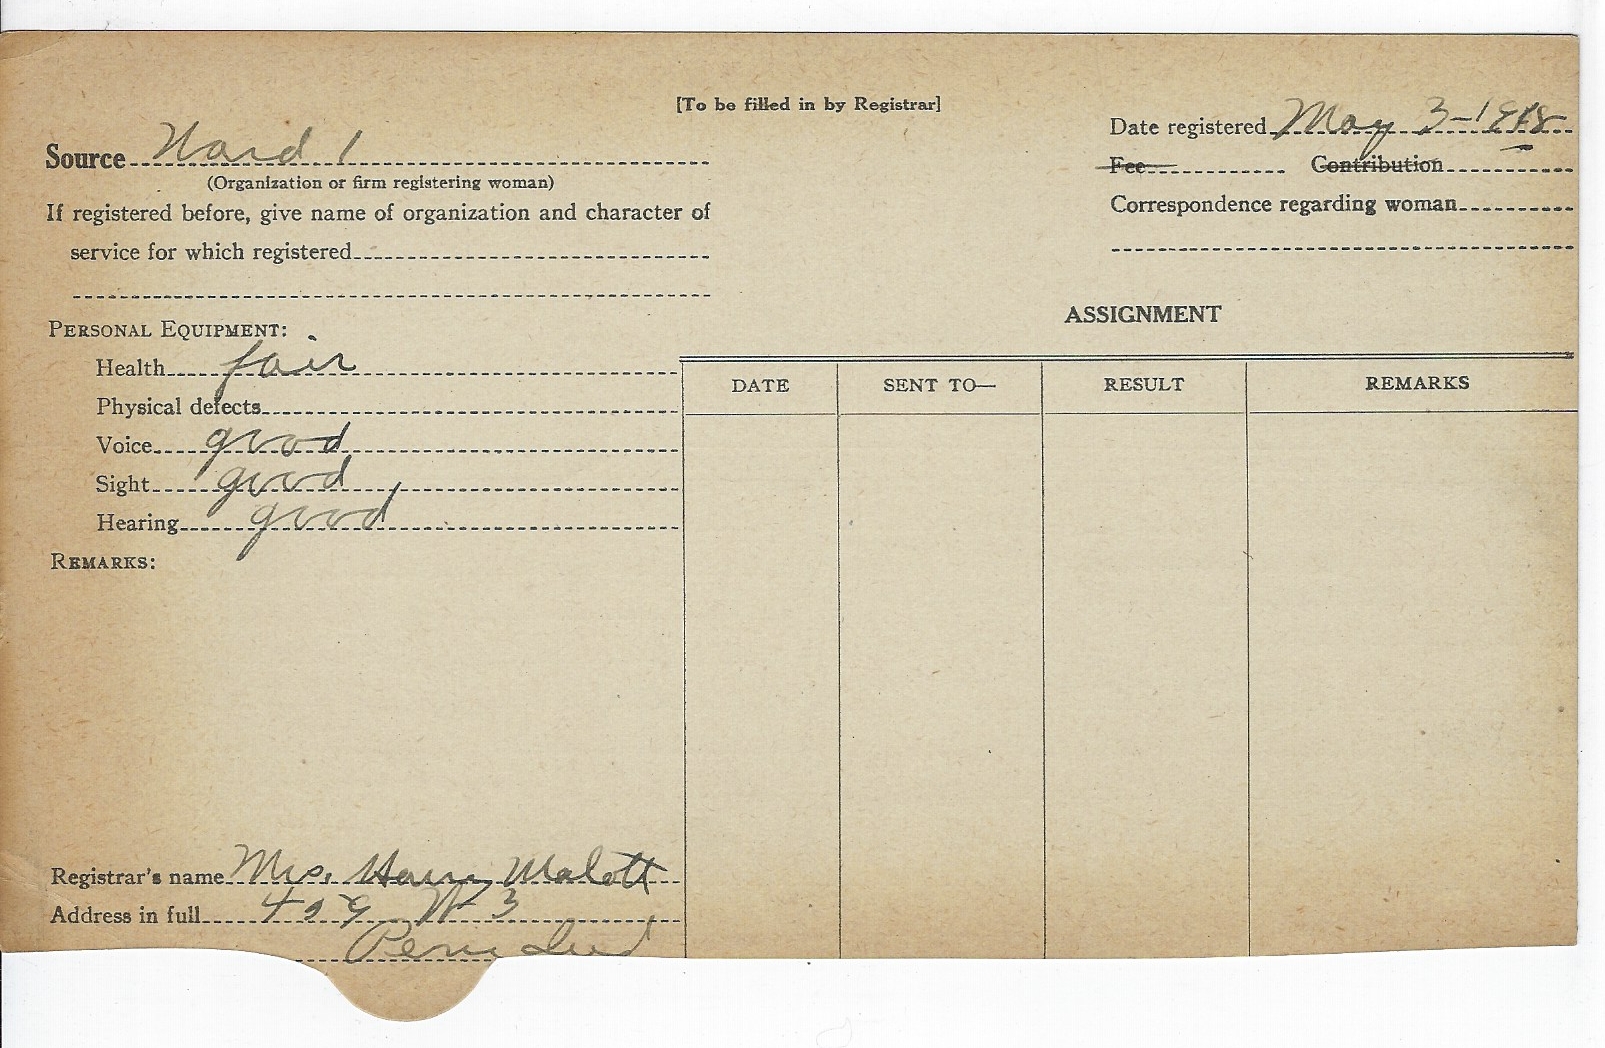 [To be filled in by Registrar]
Date registered May 3-1918
Source Ward 1
(Organization or firm registering woman)
Fee Contribution
If registered before, give name of organization and character of
service for which registered
Correspondence regarding woman
PERSONAL EQUIPMENT:
Health fair
Physical defects
Voice good
Sight good
Hearing good
REMARKS:
ASSIGNMENT
DATE SENT TO— RESULT REMARKS
Registrar's name Mrs. Harry Malott
Address in full 409 W 3
Peru Ind